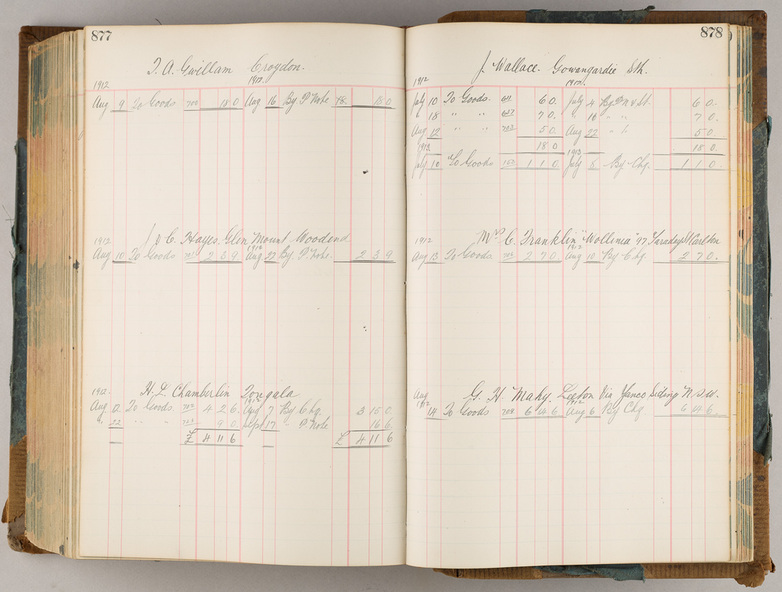 877
J. A. Gwillam Croydon.
1912 1912
Aug 9 To Goods 18 0 Aug 16 By P Note 18 0
1912 J & C. Hayes. Glen Mount Woodend
1912
Aug 10 To Goods 2 5 9 Aug 22 By P Note 2 5 9
1912 H. L. Chamberlin Tongala
1912
Aug 12 To Goods 4 2 6 Aug 7 By Chq 3 15 0
" 22 " " 9 0 Sep 17 " P Note 16 6
£ 4 11 6 £ 4 11 6
878
J. Wallace. Gowangardie Sth.
1912 1912
July 10 To Goods 6 0 July 4 By P N & St. 6 0
18 " " 7 0 " 16 " " 7 0
Aug 12 " " 5 0 Aug 22 " " 5 0
18 0 18 0
1913 1913
July 10 To Goods 1 1 0 July 6 By Chq. 1 1 0
1912 Mrs C. Franklin "Wollinia" 97 Faraday St Carlton
1912
Aug 13 To Goods 2 7 0 Aug 10 By Chq 2 7 0
Aug G. H. Mahy. Leeton Via Yanco Siding N.S.W.
1912 1912
14 To Goods 6 6 Aug 6 By Chq 6 6